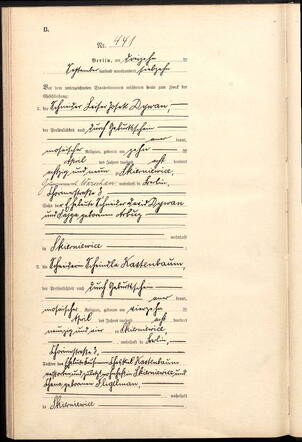 B.
Nr. 441
Berlin, am dreizehn ten
September tausend neunhundert siebzehn
Vor dem unterzeichneten Standesbeamten erschienen heute zum Zweck der
Eheschließung:
1. der Schneider Leiser Josek Dyzwan,
der Persönlichkeit nach durch Geburtsschein
kannt,
mosaischer Religion, geboren am zehn ten
April des Jahres tausend acht
hundert achtzig und neun in Skierniewice,
wohnhaft in Berlin,
Thornerstraße 3
Sohn der Eheleute Schneider David Dyzwan
und Tauba geborenen
wohnhaft
in Skierniewice
2. die Schneiderin Scheindla Kastenbaum,
der Persönlichkeit nach durch Geburtsschein
kannt,
mosaischer Religion, geboren am vierzehn ten
April des Jahres tausend acht
hundert neunzig und vier in Skierniewice
wohnhaft in Berlin,
Thornerstraße 3,
Tochter des Kastenbaum
verstorben und zuletzt wohnhaft in Skierniewice und
Chana geborenen Fligelman,
wohnhaft
in Skierniewice